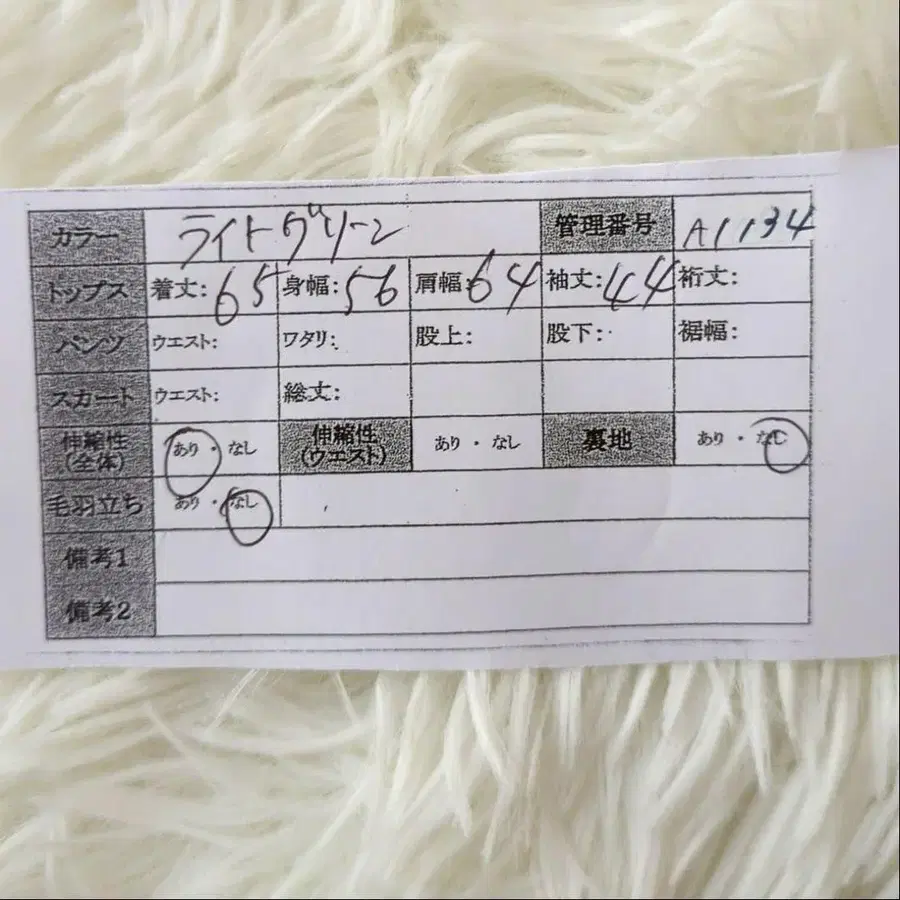 カラー ライトグリーン 管理番号 A1134
トップス 着丈:65 身幅:56 肩幅:64 袖丈:44 裄丈:
パンツ ウエスト: ワタリ: 股上: 股下: 裾幅:
スカート ウエスト: 総丈:
伸縮性(全体) あり・なし 伸縮性(ウエスト) あり・なし 裏地 あり・なし
毛羽立ち あり・なし
備考1
備考2